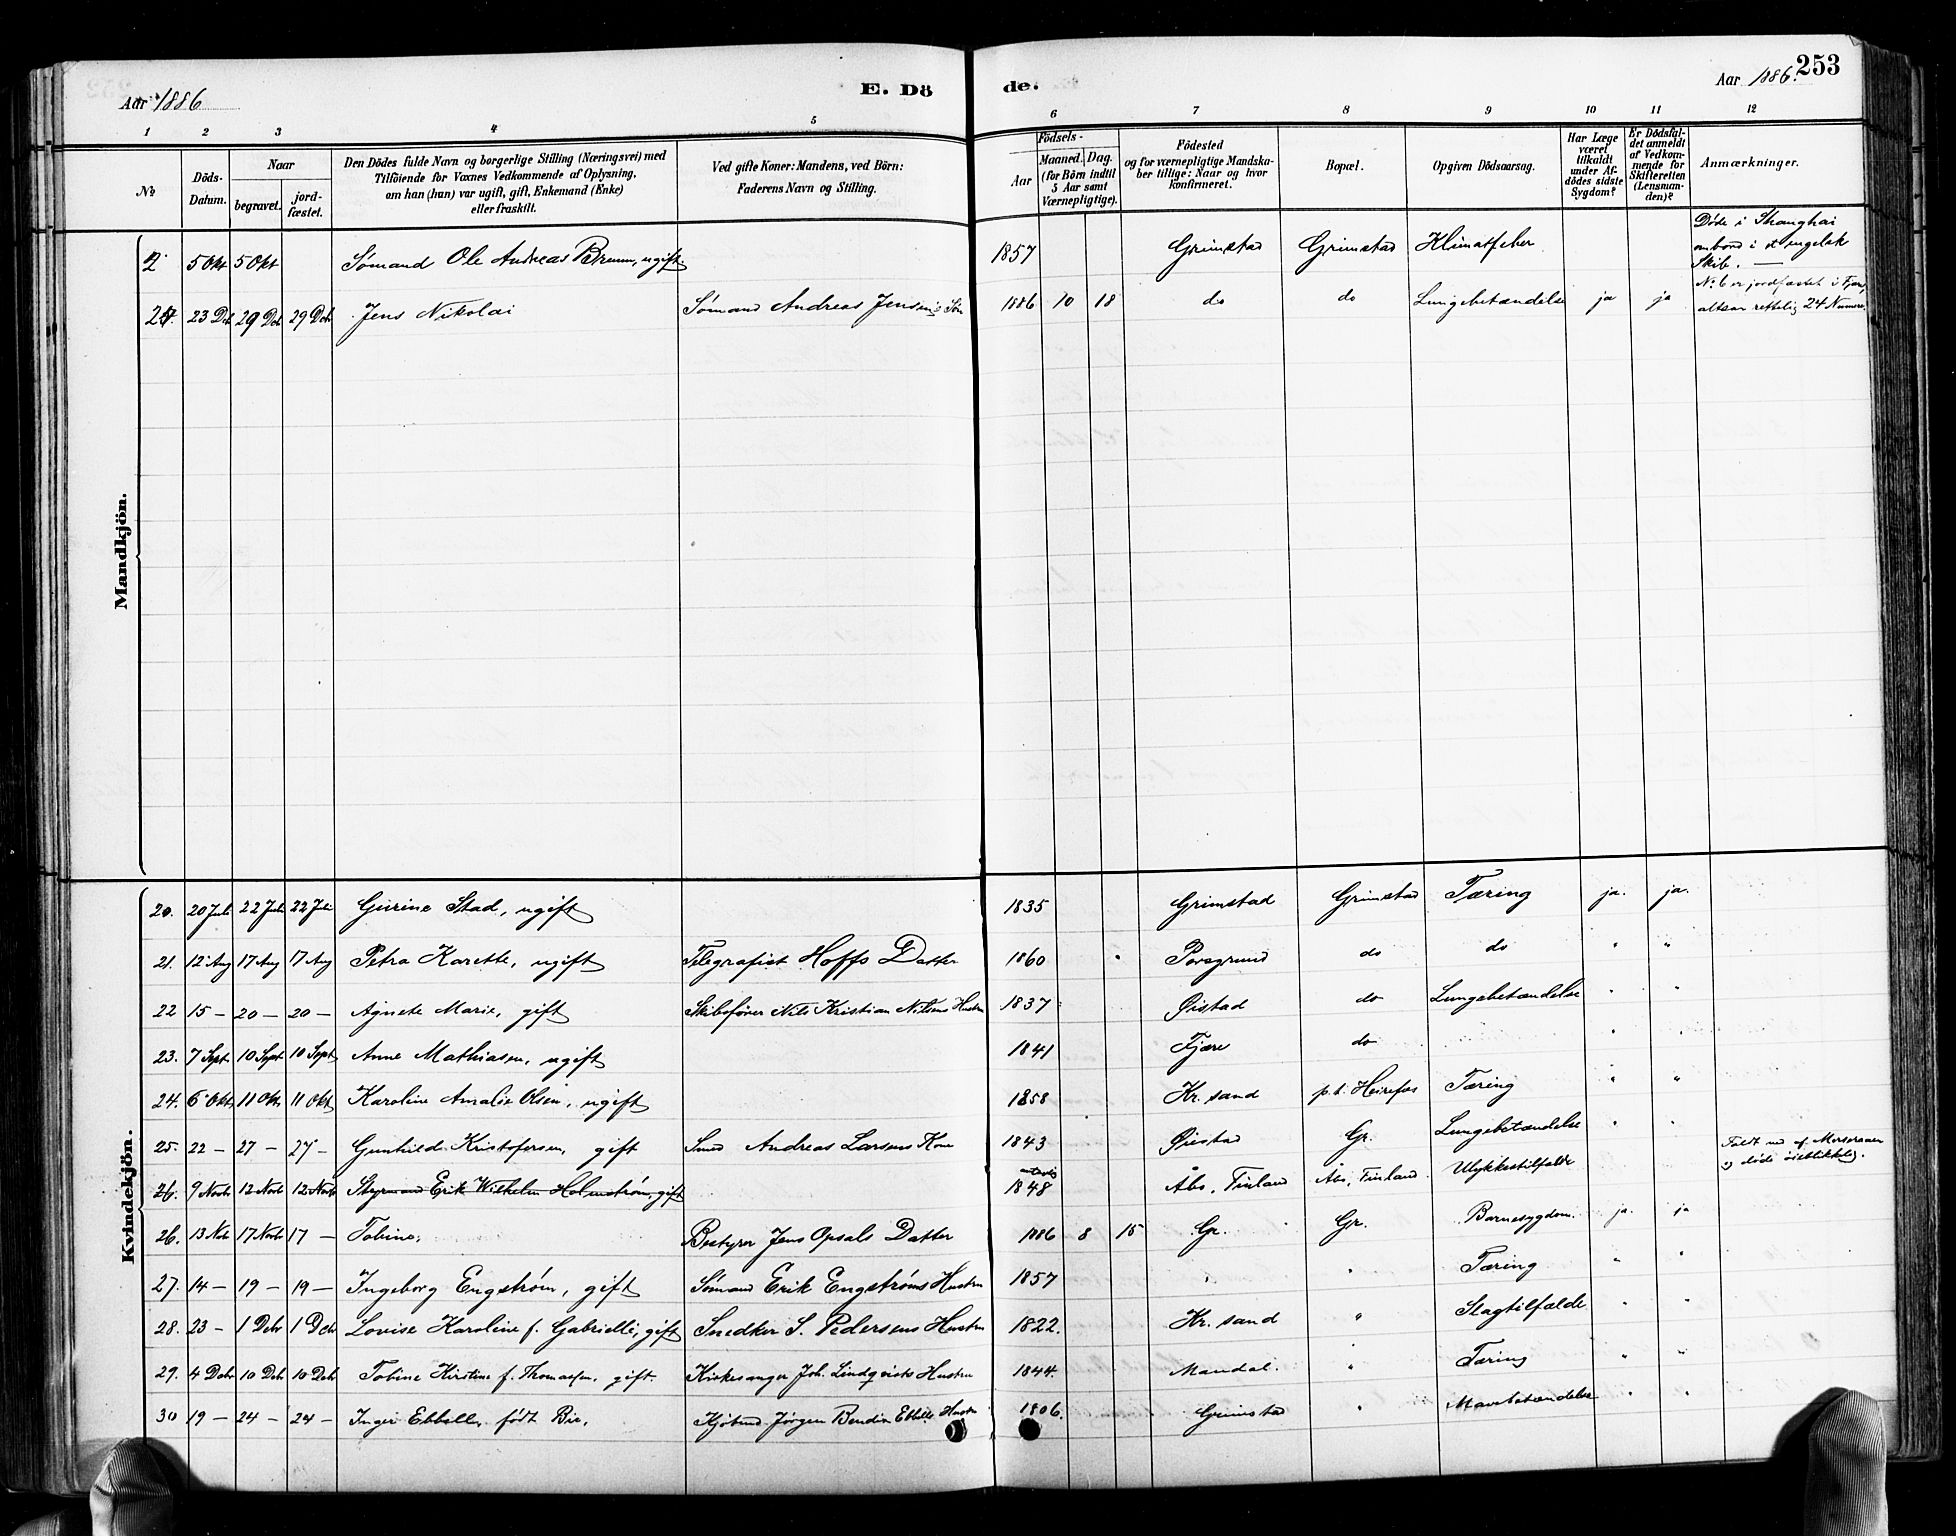 Aar 1886 E. Dö de. Aar 1886. 253
1 2 3 4 5 6 7 8 9 10 11 12
No. Döds-Datum. Naar begravet. jord-fæstet. Den Dödes fulde Navn og borgerlige Stilling (Næringsvei) med Tilföiende for Voxnes Vedkommende af Oplysning, om han (hun) var ugift, gift, Enkemand (Enke) eller fraskilt. Ved gifte Koner: Mandens, ved Börn: Faderens Navn og Stilling. Födsels- Aar Maaned. Dag. (for Börn indtil 5 Aar samt Værnepligtige). Födested og for værnepligtige Mandskaber tillige: Naar og hvor konfirmeret. Bopæl. Opgiven Dödsaarsag. Har Læge været tilkaldt under Afdödes sidste Sygdom? Er Dödsfaldet anmeldt af Vedkommende for Skifteretten (Lensmanden)? Anmærkninger.
Mandkjön.
2 5 Okt 5 Okt Sømand Ole Andreas Bruun, ugift. 1857 Grimstad Grimstad Klimatfeber Døde i Shanghai ombord i et engelsk Skib. —
23 Dcb 29 Dcb 29 Dcb Jens Nikolai Sømand Andreas Jensens Søn 1886 10 18 do do Lungebetændelse ja ja No 6 er jordfæstet i Fjære, altsaa rettelig 24 Numere.
Kvindekjön.
20. 20 Juli 22 Juli 22 Juli Gurine Stad, ugift 1835 Grimstad Grimstad Tæring ja. ja.
21. 12 Aug 17 Aug 17 Aug Petra Karette, ugift Telegrafist Hoffs Datter 1860 Porsgrund do do " "
22 15 — 20 — 20 — Agnete Marie, gift Skibsfører Nils Kristian Nilsens Hustru 1837 Øistad do Lungebetændelse " "
23. 7 Sept 10 Sept 10 Sept Anne Mathiasen, ugift 1841 Fjære do " "
24. 6 Okt 11 Okt 11 Okt Karoline Amalie Olsen, ugift 1858 Kr. sand p.t. Heirefos Tæring " "
25. 22 — 27 — 27 — Gunhilde Kristofersen, gift Smed Andreas Larsens Kone 1843 Øiestad Gr. Lungebetændelse " "
26. 9 Novb 12 Novb 12 Novb Styrmand Erik Wilhelm Holmstrøm, gift 1848 Åbo, Finland Åbo, Finland Ulykkestilfælde Faldt ned af Mersraaen og døde øieblikkelig.
26. 13 Nob 17 Novb 17 — Tobine, Bestyrer Jens Opsals Datter 1886 8 15 Gr. Gr. Barnesygdom. ja. ja
27. 14 — 19 — 19 — Ingeborg Engstrøm, gift Sømand Erik Engstrøms Hustru 1857 " " Tæring " "
28. 23 — 1 Dcb 1 Dcb Lovise Karoline f. Gabrielli, gift Snedker S. Pedersens Hustru 1822. Kr. sand " Slagtilfælde " "
29. 4 Dcb 10 Dcb 10 Dcb Tobine Kirstine f. Thomassen, gift. Kirkesanger Joh. Lindqvists Hustru 1844. Mandal. " Tæring " "
30 19 — 24 — 24 — Inger Ebbell, født Bie, Kjøbmd Jørgen Bendix Ebbells Hustru 1806. Grimstad " Mavebetændelse " "